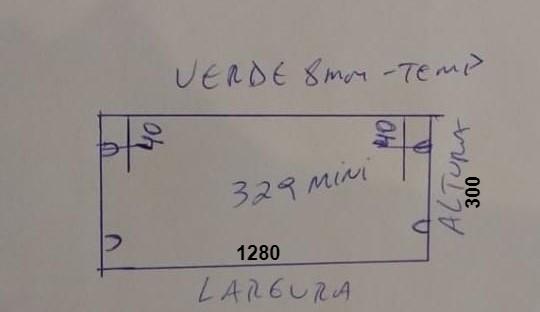 VERDE 8mm - TEMP
40
40
329 MINI
ALTURA
300
1280
LARGURA